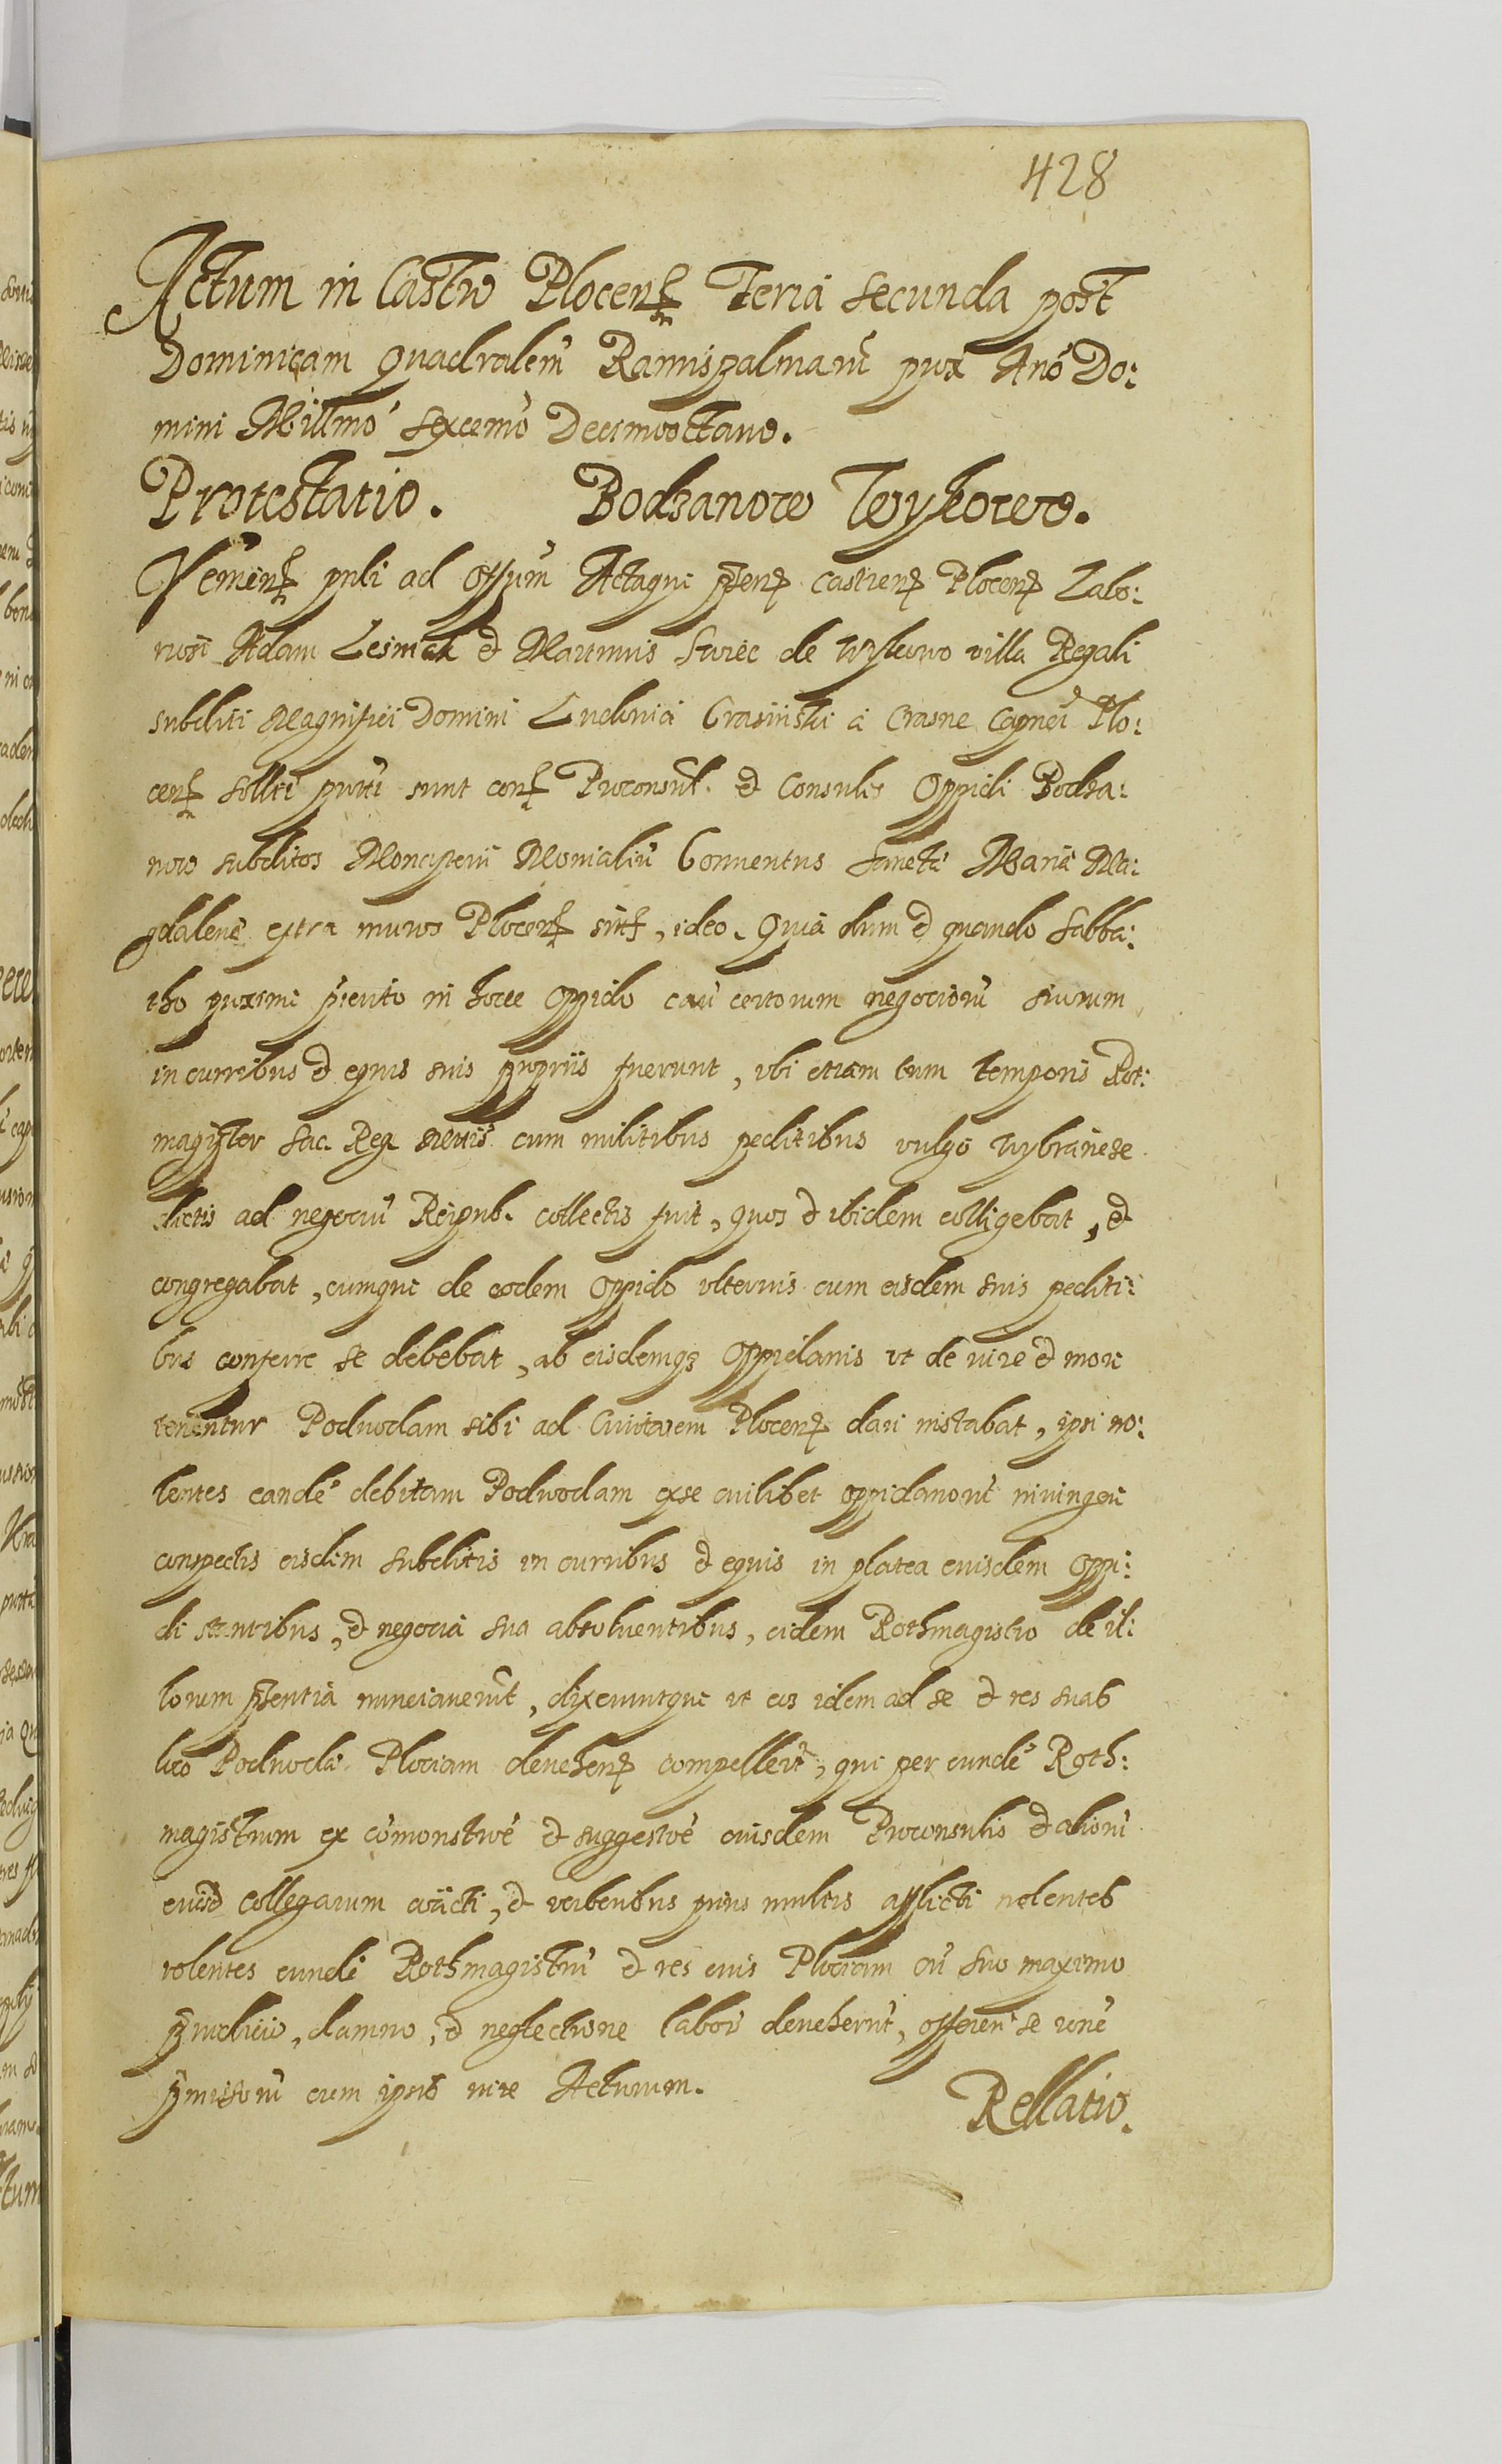 428
Actum in Castro Plocen Feria secunda post
Dominicam Quadralem Ramispalmarū prox Anō Do:
mini Millmō sexcemō Decimooctauo.
Protestatio. Bodzanow Wykowo.
Venien pnli ad Offum Actaque pñen castren Plocen Labo:
riosi Adam Lesniak et Martinus Swiec de Wykowo villa Regali
subditi Magnifici Domini Ludouici Crasinski a Crasne Capnei Plo:
cen sollti prūti sunt con Proconsul. et Consules Oppidi Bodza:
now subditos Monrÿ Monialiū Conuentus Sancte Marie Ma:
gdalene extra muros Plocen sit, ideo. Quia dum et quando Sabba:
tho proxime pterito in hocce oppido cau certorum negociorū suorum
in curribus et equis suis proprijs fuerunt, vbi etiam tum temporis Rot:
magister Sac. Reg Mttis cum militibus peditibus vulgo Wybrańcze
dictis ad negociū Reipub. collectis fuit, quos et ibidem colligebat, et
congregabat, cumque de eodem oppido vlterius cum eisdem suis pediti:
bus conferre se debebat, ab eisdemq Oppidanis vt de iure et more
tenentur Podwodam sibi ad Ciuitatem Plocen dari instabat, ipsi no:
lentes eandē debitam Podwodam ex se cuilibet oppidanorū iniungere
conspectis eisdem subditis in curribus et equis in platea eiusdem oppi:
di stantibus, et negocia sua absoluentibus, eidem Rothmagistro de il:
lorum pñentia nunciauerūt, dixeruntque vt eos idem ad se et res suas
loco Podwodæ Plociam deuehen compelleret, qui per eundē Roth:
magistrum ex cōmonstroē et suggestoē eiusdem Proconsulis et aliorū
eiusd collegarum coacti, et verberibus prius multis afflicti nolentes
volentes eundē Rothmagistrū et res eius Plociam cū suo maximo
pruditio, damno, et neglectione labor deueherūt, offeren se rōne
pmissorū cum ipsis iure Acturum.
Rellatio.